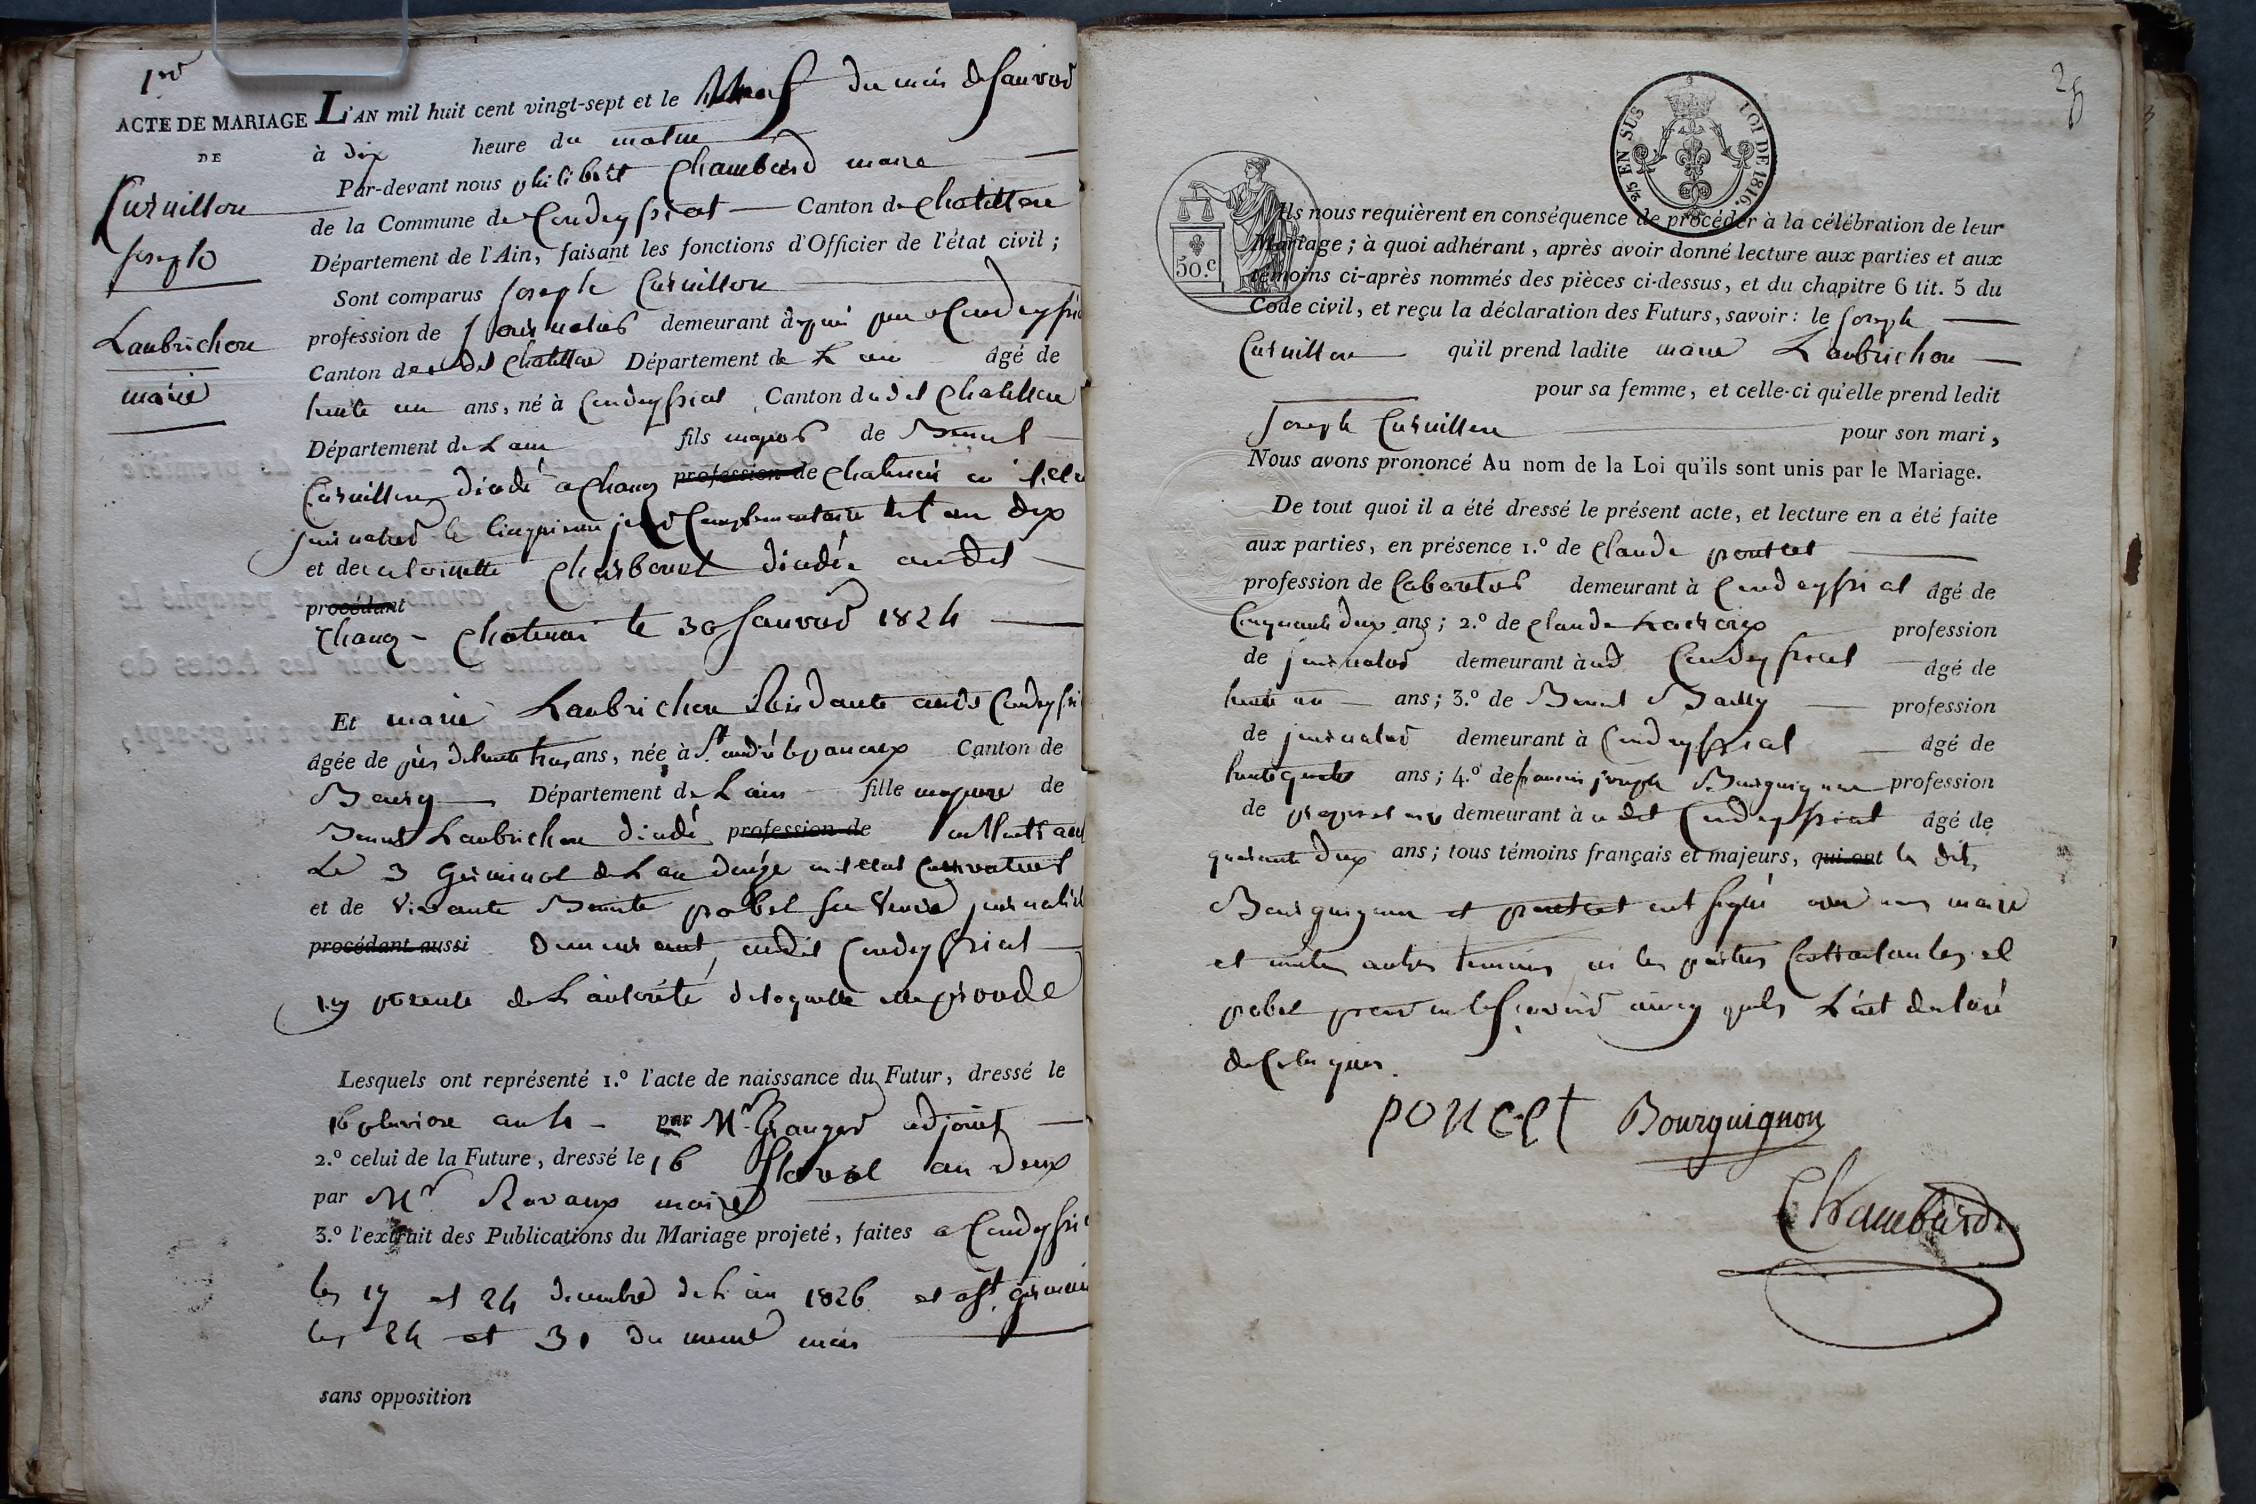 1er
ACTE DE MARIAGE
DE
Curnillon
Joseph
Laubrichon
marie
L'AN mil huit cent vingt-sept et le neuf du mois de Janvier
à dix heure du matin
Par-devant nous philibert Chambard maire
de la Commune de Condeyssiat Canton de Chatillon
Département de l'Ain, faisant les fonctions d'Officier de l'état civil ;
Sont comparus Joseph Curnillon
profession de Journalier demeurant a Condeyssiat
Canton de Chatillon Département de L'ain âgé de
trente un ans, né à Condeyssiat Canton dudit Chatillon
Département de L'ain fils majeur de Benoit
Curnillon décédé a profession de Chatenai
journalier le Cinquieme jour Complementaire an dix
et de antoinette Charbonet décédée audit
procédant
Chatenai le 30 Janvier 1824
Et marie Laubrichon Résidante audit Condeyssiat
âgée de près de trente trois ans, née à St. andré le panoux Canton de
Bourg Département de L'ain fille majeure de
Benoit Laubrichon décédé profession de
Le 3 Germinal de L'an douze
et de vivante Benoite pobel sa veuve journalière
procédant aussi demeurant audit Condeyssiat
icy présente de L'autorité de laquelle elle procède
Lesquels ont représenté 1.° l'acte de naissance du Futur, dressé le
16 pluviose an 4 par Mr. Granger adjoint
2.° celui de la Future, dressé le 16 floreal an deux
par Mr. Ravaux maire
3.° l'extrait des Publications du Mariage projeté, faites a Condeyssiat
les 17 et 24 decembre de L'an 1826 et a St. germain
les 24 et 31 du meme mois
sans opposition
25 EN SUS LOI DE 1816.
50.C
Ils nous requièrent en conséquence de procéder à la célébration de leur
Mariage ; à quoi adhérant, après avoir donné lecture aux parties et aux
témoins ci-après nommés des pièces ci-dessus, et du chapitre 6 tit. 5 du
Code civil, et reçu la déclaration des Futurs, savoir : le Joseph
Curnillon qu'il prend ladite marie Laubrichon
pour sa femme, et celle-ci qu'elle prend ledit
Joseph Curnillon pour son mari,
Nous avons prononcé Au nom de la Loi qu'ils sont unis par le Mariage.
De tout quoi il a été dressé le présent acte, et lecture en a été faite
aux parties, en présence 1.° de Claude poncet
profession de Cabartier demeurant à Condeyssiat âgé de
Cinquante deux ans ; 2.° de Claude Lacroix profession
de journalier demeurant à Condeyssiat âgé de
trente un ans ; 3.° de Benoit Bailly profession
de journalier demeurant à Condeyssiat âgé de
trente quatre ans ; 4.° de francois joseph Bourguignon profession
de proprietaire demeurant à udit Condeyssiat âgé de
quarante deux ans ; tous témoins français et majeurs, qui ont les dits
Bourguignon et poncet ont signé avec nous maire
et non les autres temoins ni les parties Contractantes et
pobel pour ne le scavoir ainsy quils L'ont declaré
de ce enquis.
poncet Bourguignon
Chambard